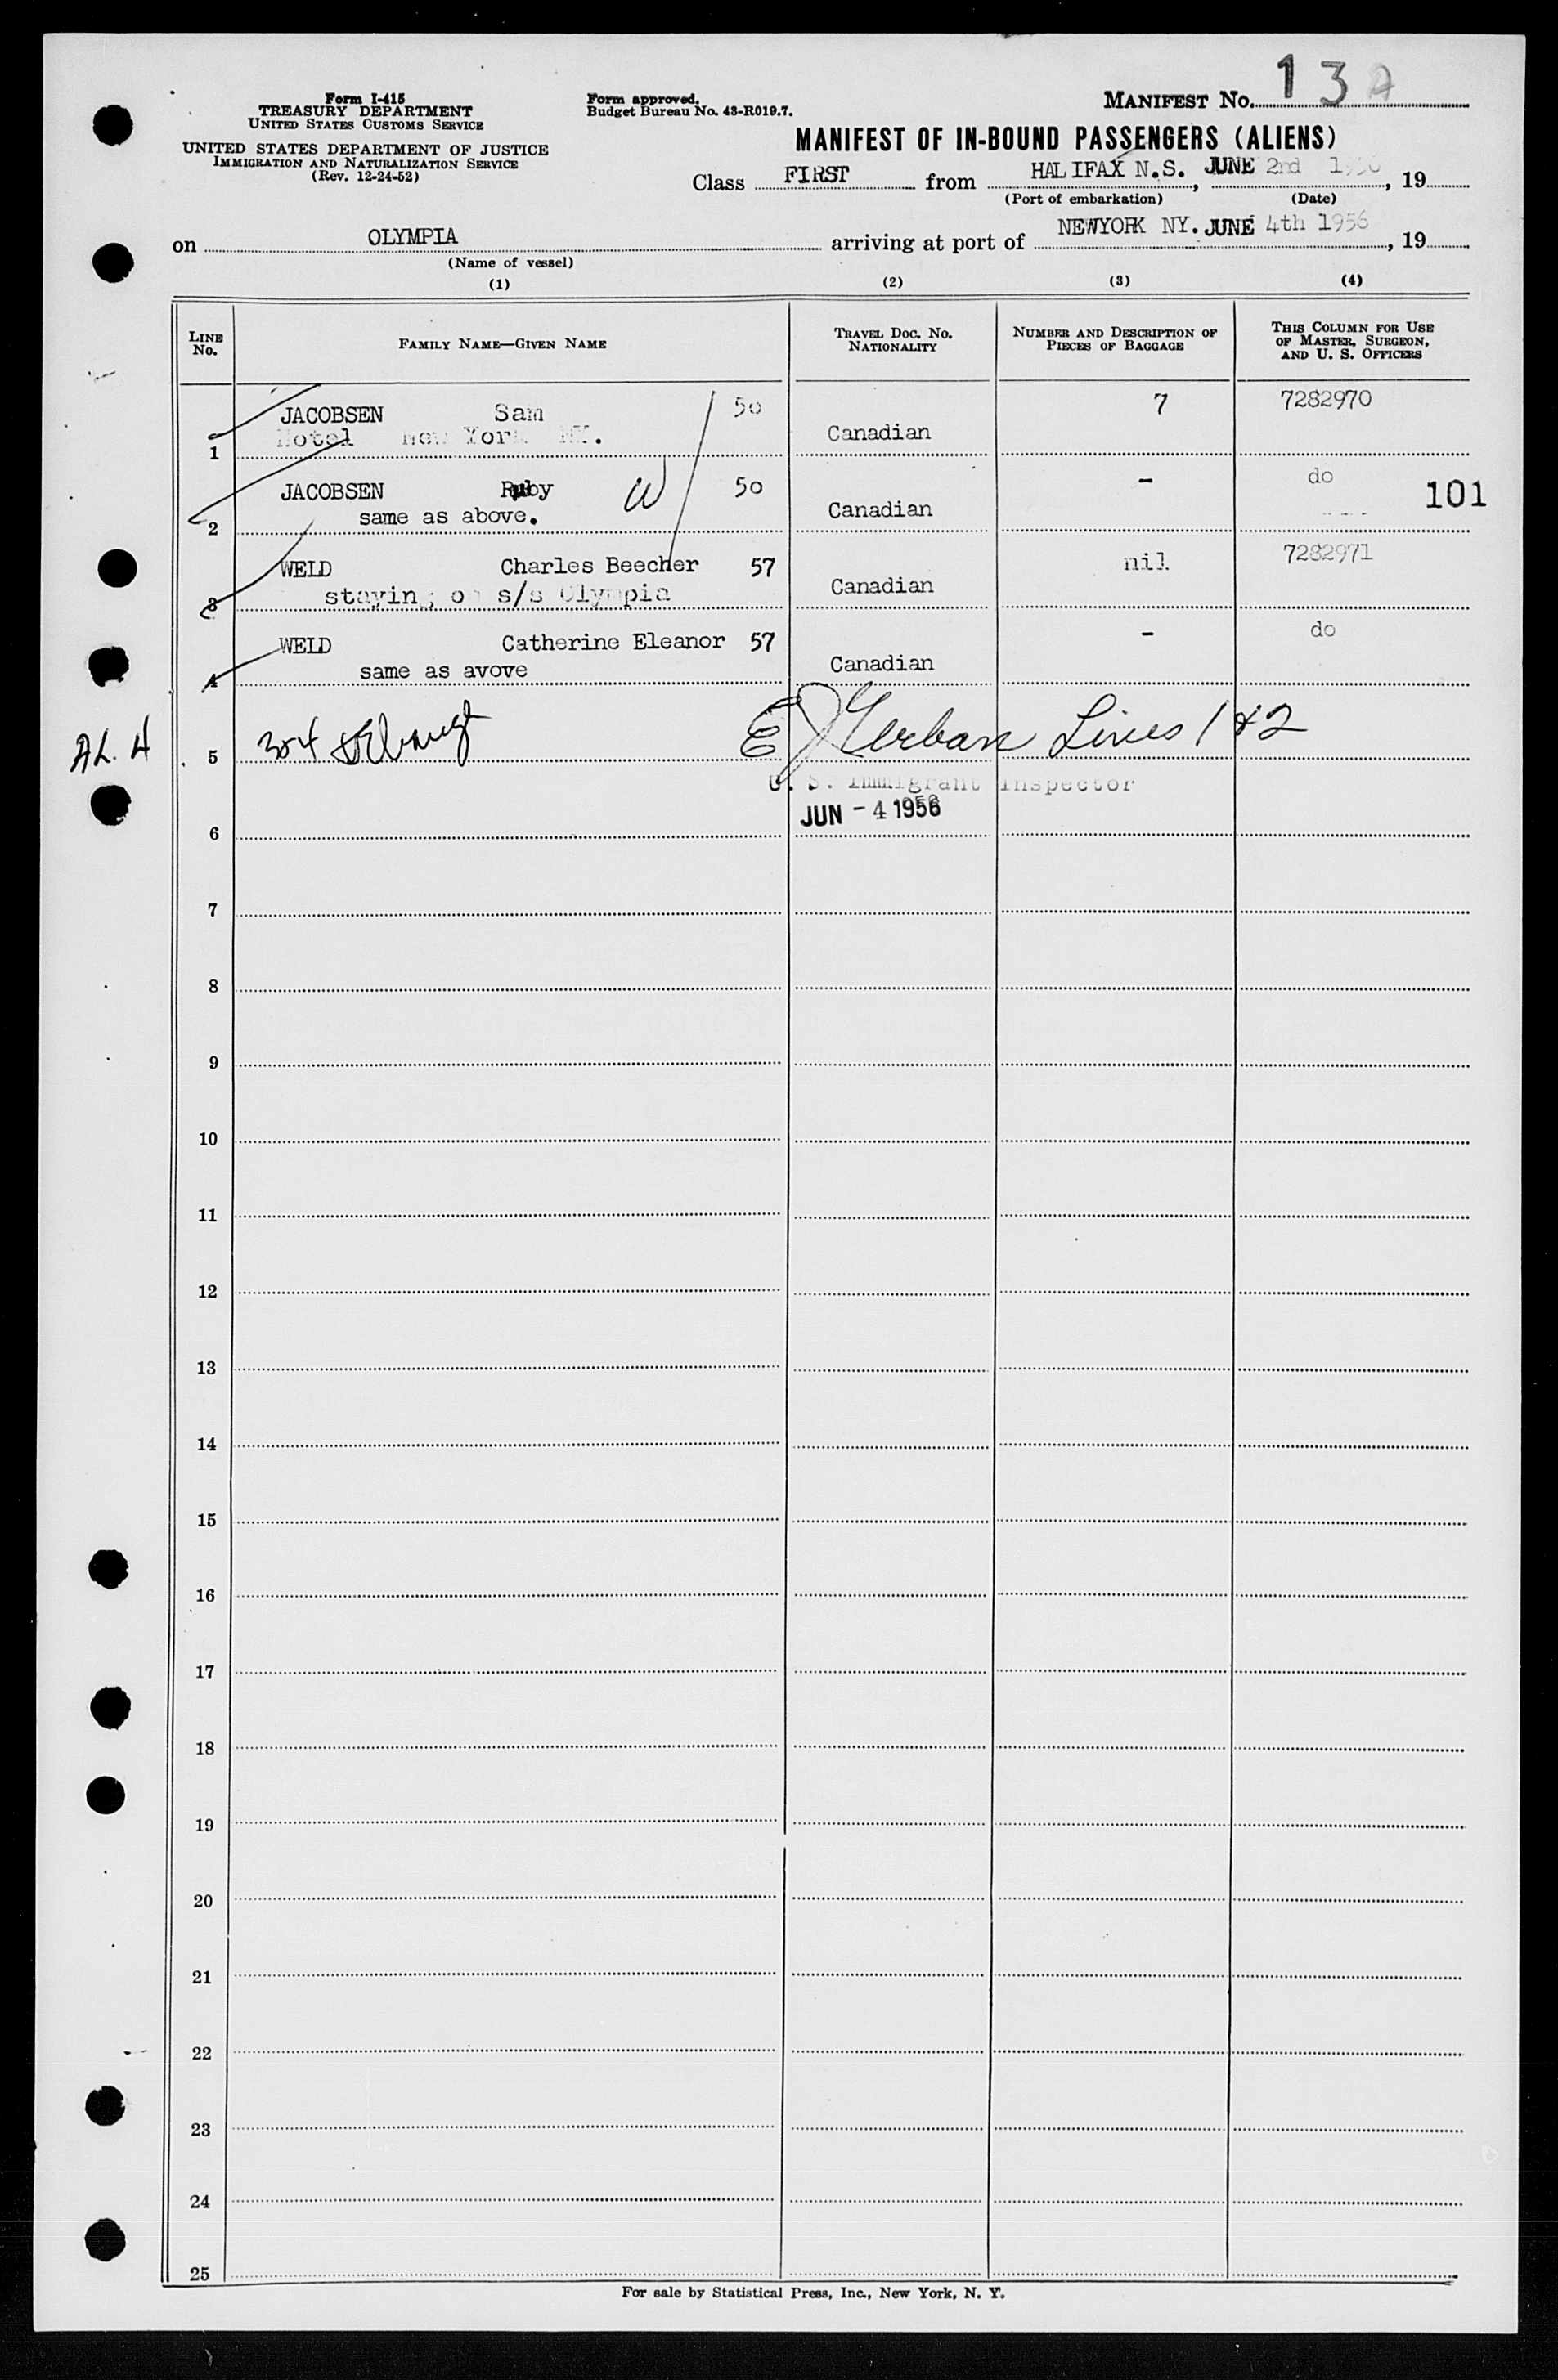 Form I-415
TREASURY DEPARTMENT
UNITED STATES CUSTOMS SERVICE
UNITED STATES DEPARTMENT OF JUSTICE
IMMIGRATION AND NATURALIZATION SERVICE
(Rev. 12-24-52)
Form approved.
Budget Bureau No. 43-R019.7.
MANIFEST No. 13
MANIFEST OF IN-BOUND PASSENGERS (ALIENS)
Class FIRST from HALIFAX N.S. , JUNE 2nd , 19
(Port of embarkation) (Date)
on OLYMPIA arriving at port of NEWYORK NY. JUNE 4th 1956 , 19
(Name of vessel)
(1) (2) (3) (4)
LINE No. FAMILY NAME—GIVEN NAME TRAVEL DOC. No. NATIONALITY NUMBER AND DESCRIPTION OF PIECES OF BAGGAGE THIS COLUMN FOR USE OF MASTER, SURGEON, AND U. S. OFFICERS
JACOBSEN Sam 50 7 7282970
1 Hotel New York NY. Canadian
JACOBSEN Ruby W 50 - do 101
2 same as above. Canadian
WELD Charles Beecher 57 nil 7282971
3 staying on s/s Olympia Canadian
WELD Catherine Eleanor 57 - do
4 same as avove Canadian
AL. 4 5 3+4 Lines 1 & 2
U. S. Immigrant Inspector
6 JUN - 4 1956
7
8
9
10
11
12
13
14
15
16
17
18
19
20
21
22
23
24
25
For sale by Statistical Press, Inc., New York, N. Y.